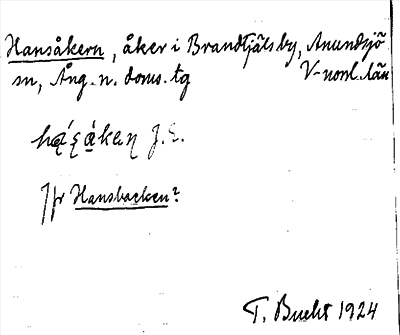 Hansåkern, åker i Brandtjäls by, Anundsjö
sn, Ång. n. doms. tg V-norrl. län
J. E.
Jfr Hansbacken?
T. Bucht 1924